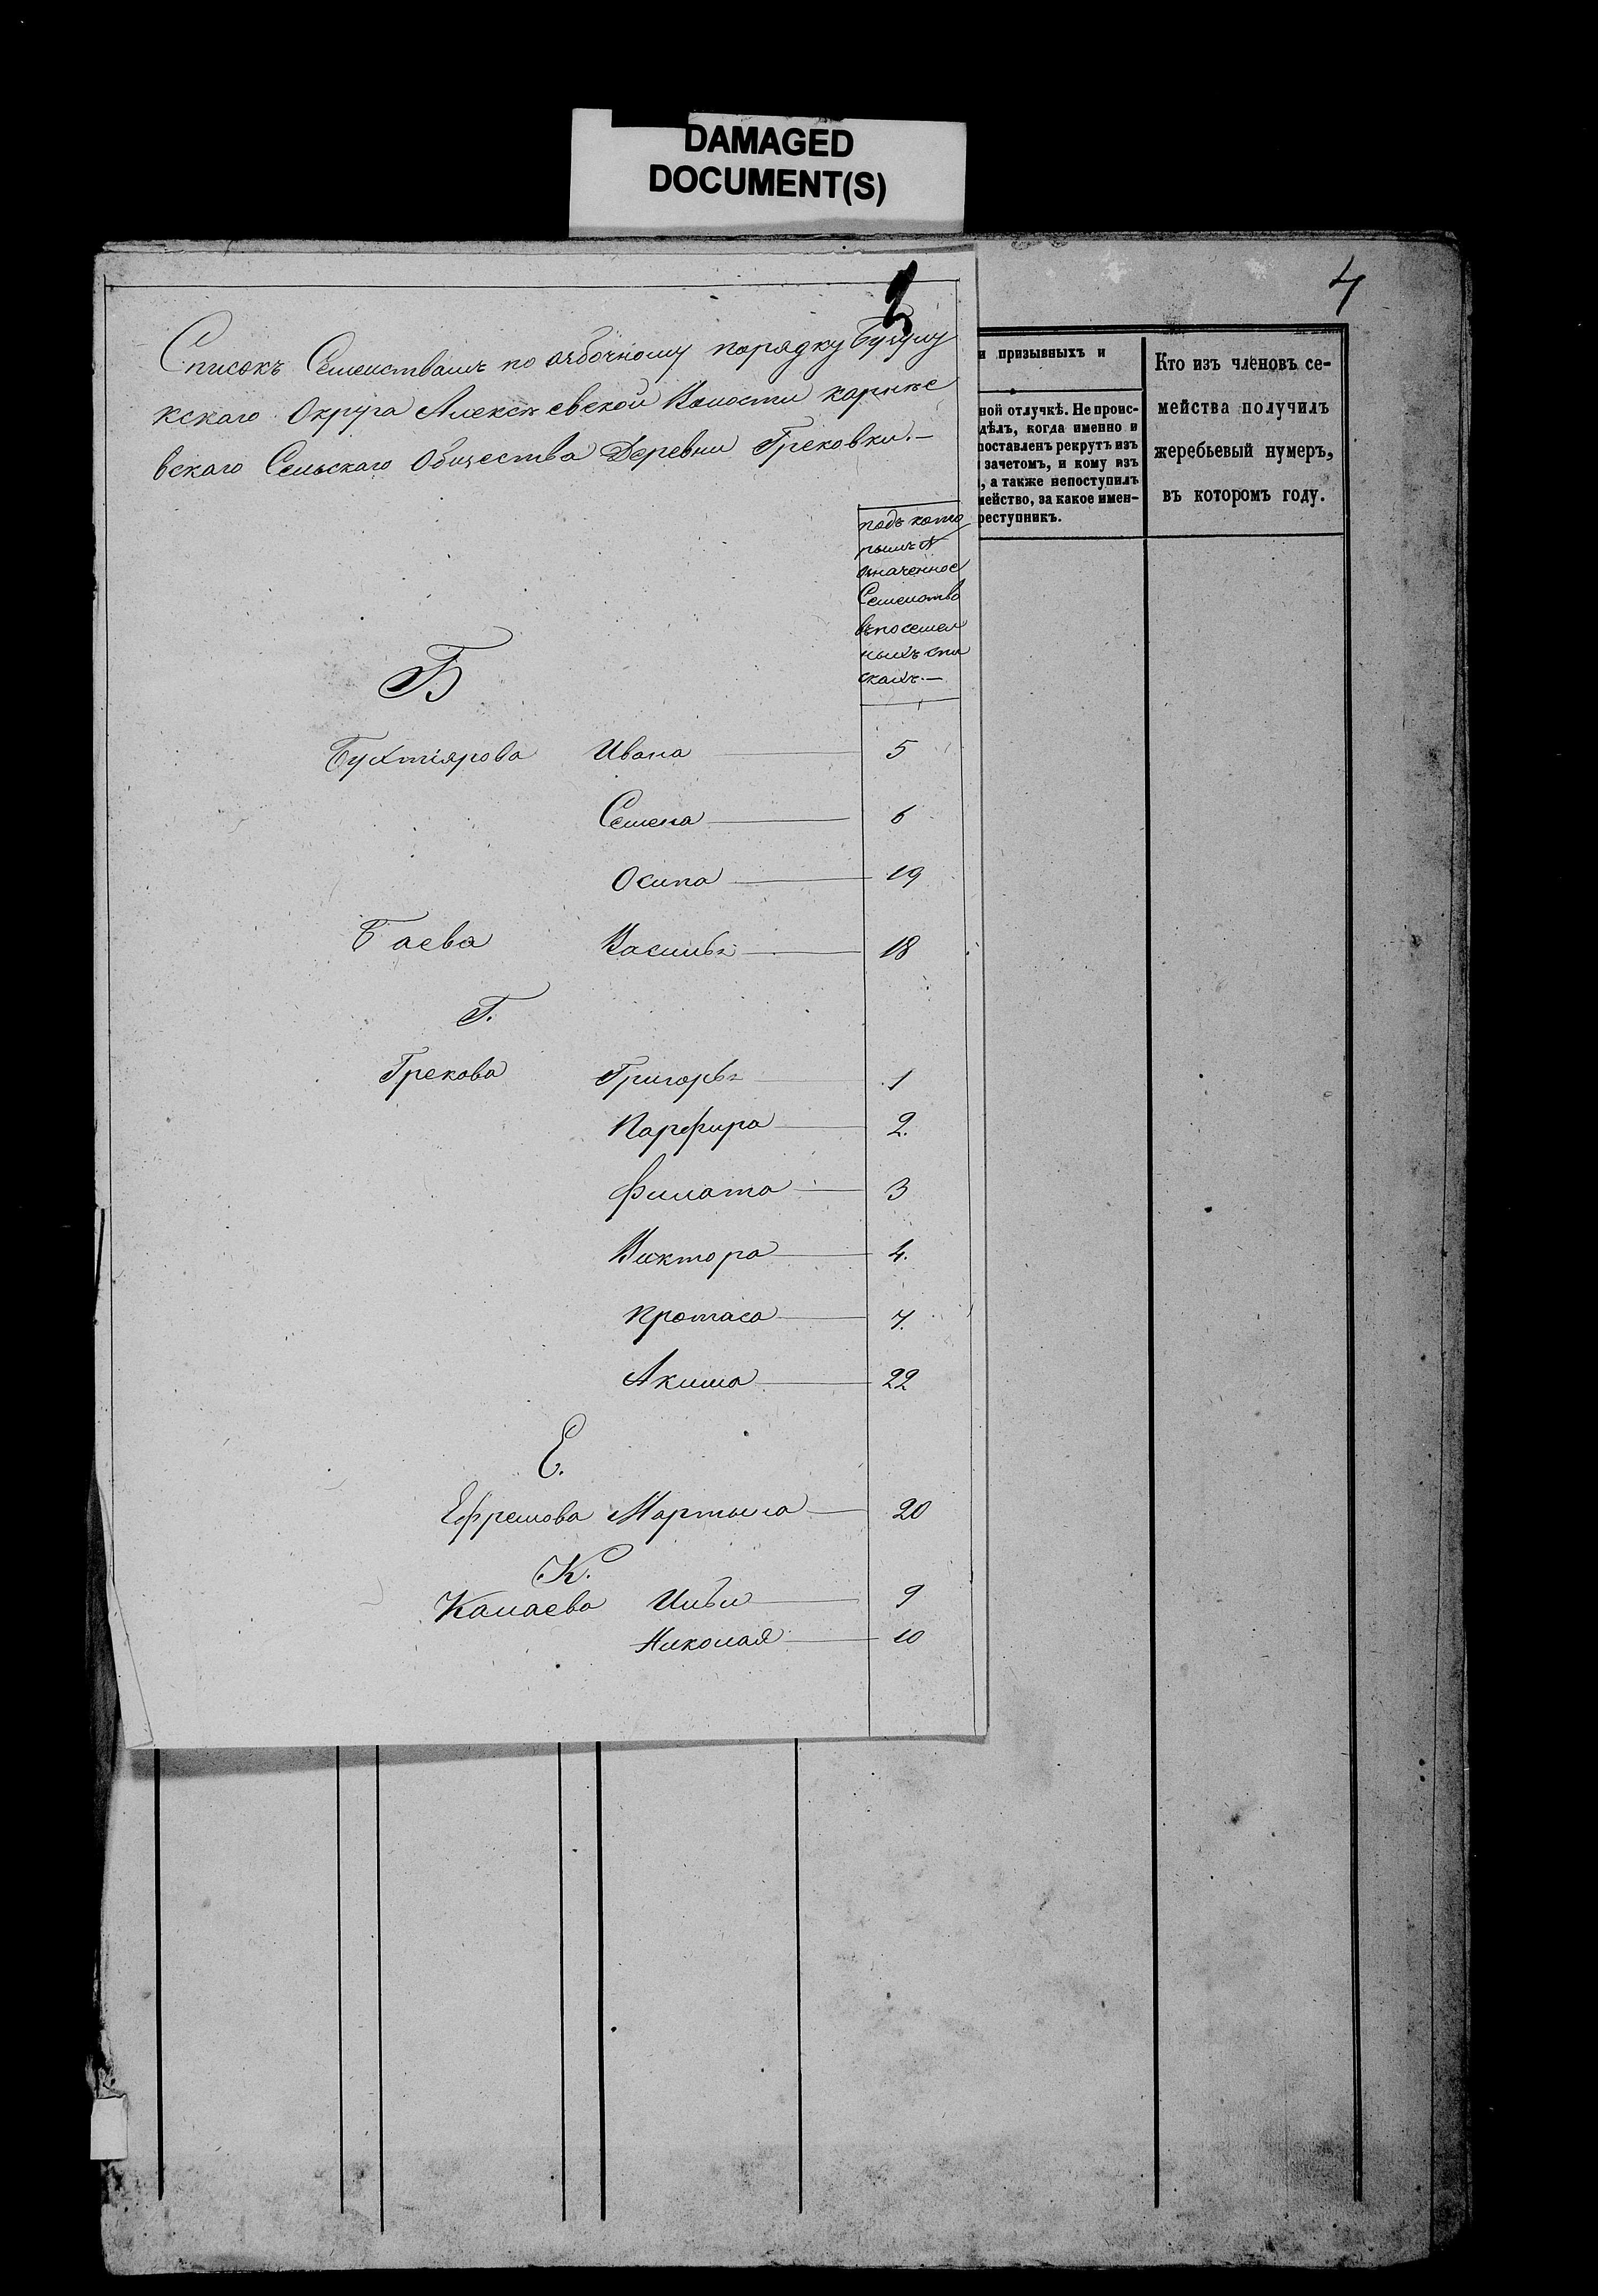 DAMAGED
DOCUMENT(S)
2
4
Списокъ Семействамъ по азбочному порядку Бузулу
кскаго Округа Алексѣевской Волости каринѣе
вскаго Сельскаго Общества Деревни Грековки.—
и призывныхъ и
ной отлучкѣ. Не проис-
дѣлъ, когда именно и
поставленъ рекрутъ изъ
зачетомъ, и кому изъ
, а также непоступилъ
мейство, за какое имен-
реступникъ.
Кто изъ членовъ се-
мейства получилъ
жеребьевый нумеръ,
въ которомъ году.
подъ кото
рымъ №
означенное
Семейство
въ посемей
ныхъ спи
скахъ.—
Б
Бухтіярова Ивана 5
Семена 6
Осипа 19
Баева Василья 18
Г.
Грекова Григорья 1
Парфира 2.
Филата 3
Виктора 4.
Протаса 7.
Акима 22
Е.
Ефремова Мартына 20
К.
Камаева Ильи 9
Николая 10